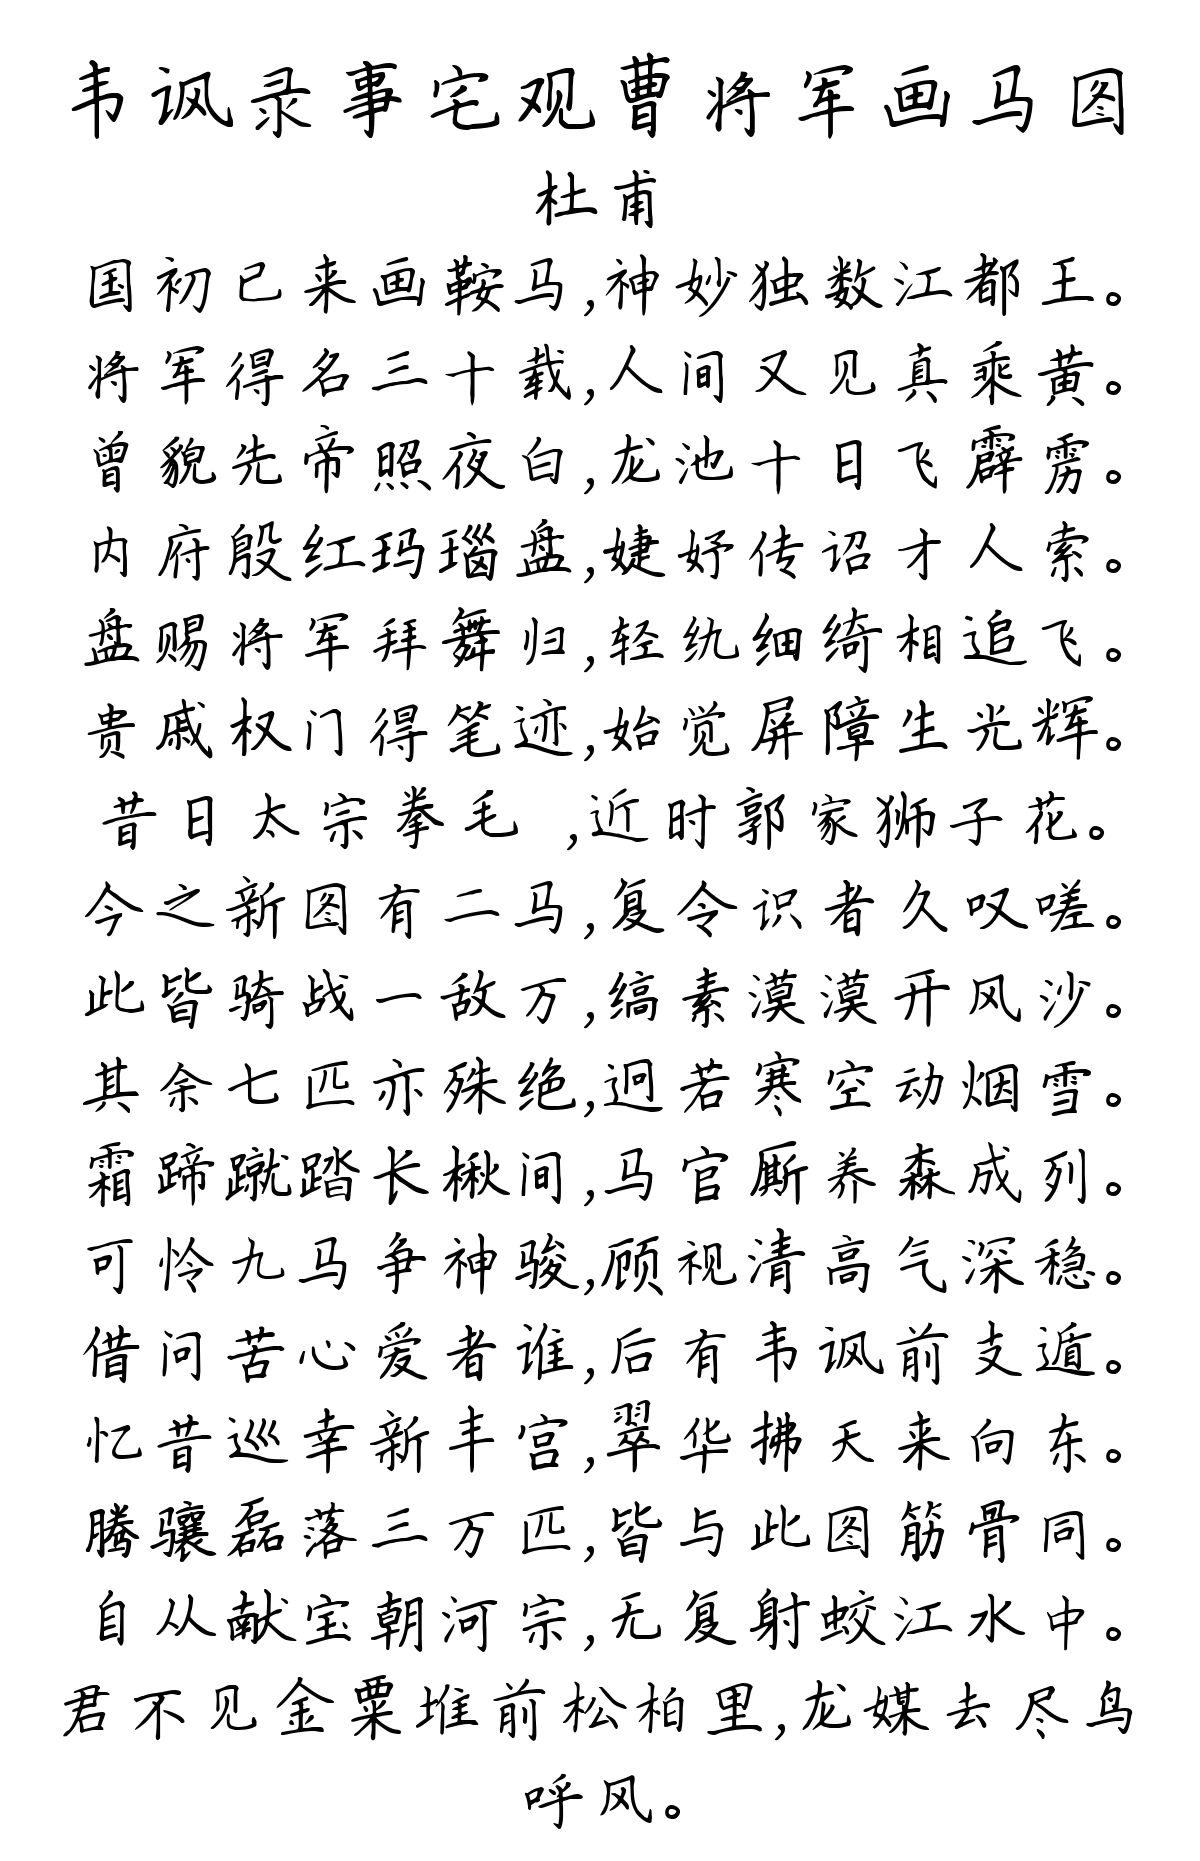 韦讽录事宅观曹将军画马图
杜甫
国初已来画鞍马,神妙独数江都王。
将军得名三十载,人间又见真乘黄。
曾貌先帝照夜白,龙池十日飞霹雳。
内府殷红玛瑙盘,婕妤传诏才人索。
盘赐将军拜舞归,轻纨细绮相追飞。
贵戚权门得笔迹,始觉屏障生光辉。
昔日太宗拳毛 ,近时郭家狮子花。
今之新图有二马,复令识者久叹嗟。
此皆骑战一敌万,缟素漠漠开风沙。
其余七匹亦殊绝,迥若寒空动烟雪。
霜蹄蹴踏长楸间,马官厮养森成列。
可怜九马争神骏,顾视清高气深稳。
借问苦心爱者谁,后有韦讽前支遁。
忆昔巡幸新丰宫,翠华拂天来向东。
腾骧磊落三万匹,皆与此图筋骨同。
自从献宝朝河宗,无复射蛟江水中。
君不见金粟堆前松柏里,龙媒去尽鸟
呼风。